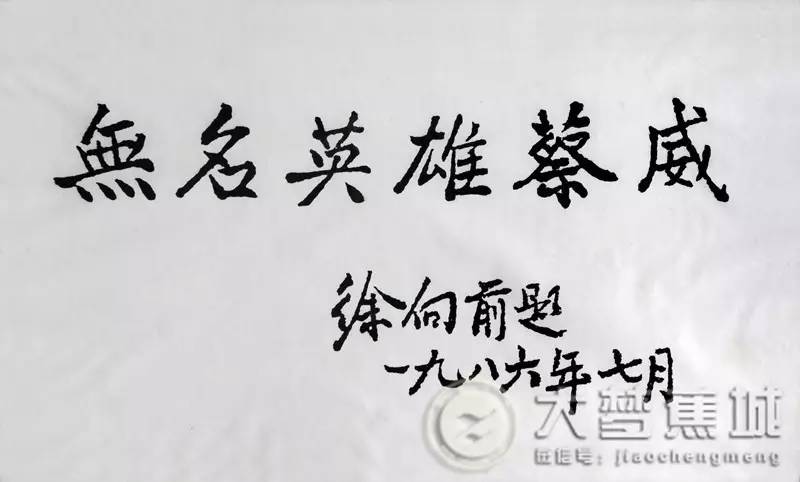 無名英雄蔡威
徐向前题
一九八六年七月
大梦蕉城
微信号：jiaochengmeng